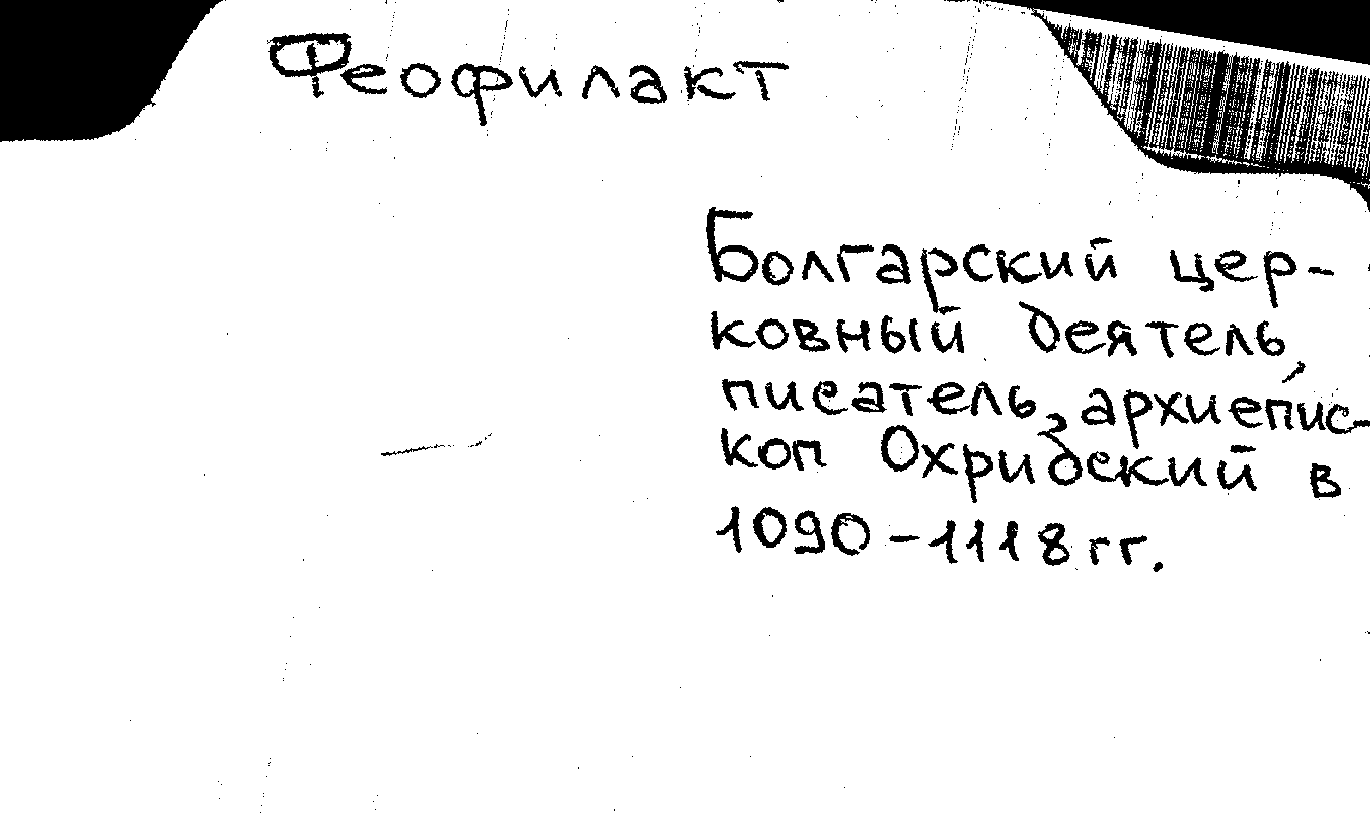 Феофилакт
Болгарский цер-
ковный деятель,
писатель, архиепис-
коп Охридский в
1090-1118 гг.